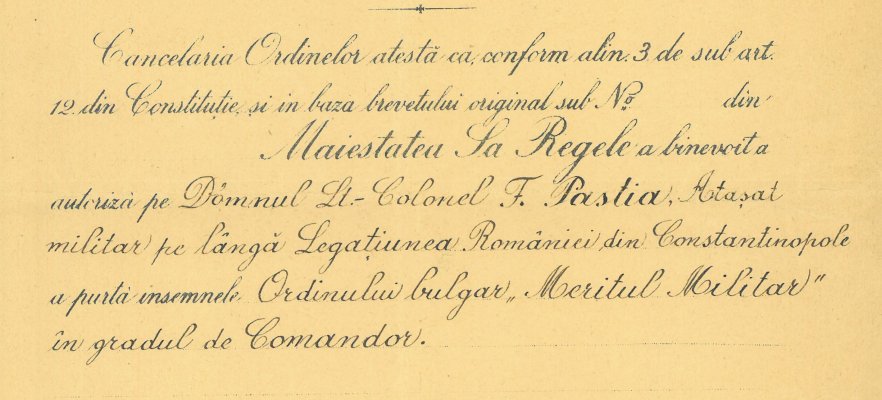 Cancelaria Ordinelor atestă că, conform alin. 3 de sub art.
12 din Constituție, și in baza brevetului original sub No din
Maiestatea Sa Regele a binevoit a
autoriză pe Domnul Lt.-Colonel F. Pastia, Atașat
militar pe lângă Legațiunea României din Constantinopole
a purtà insemnele Ordinului bulgar „Meritul Militar"
în gradul de Comandor.